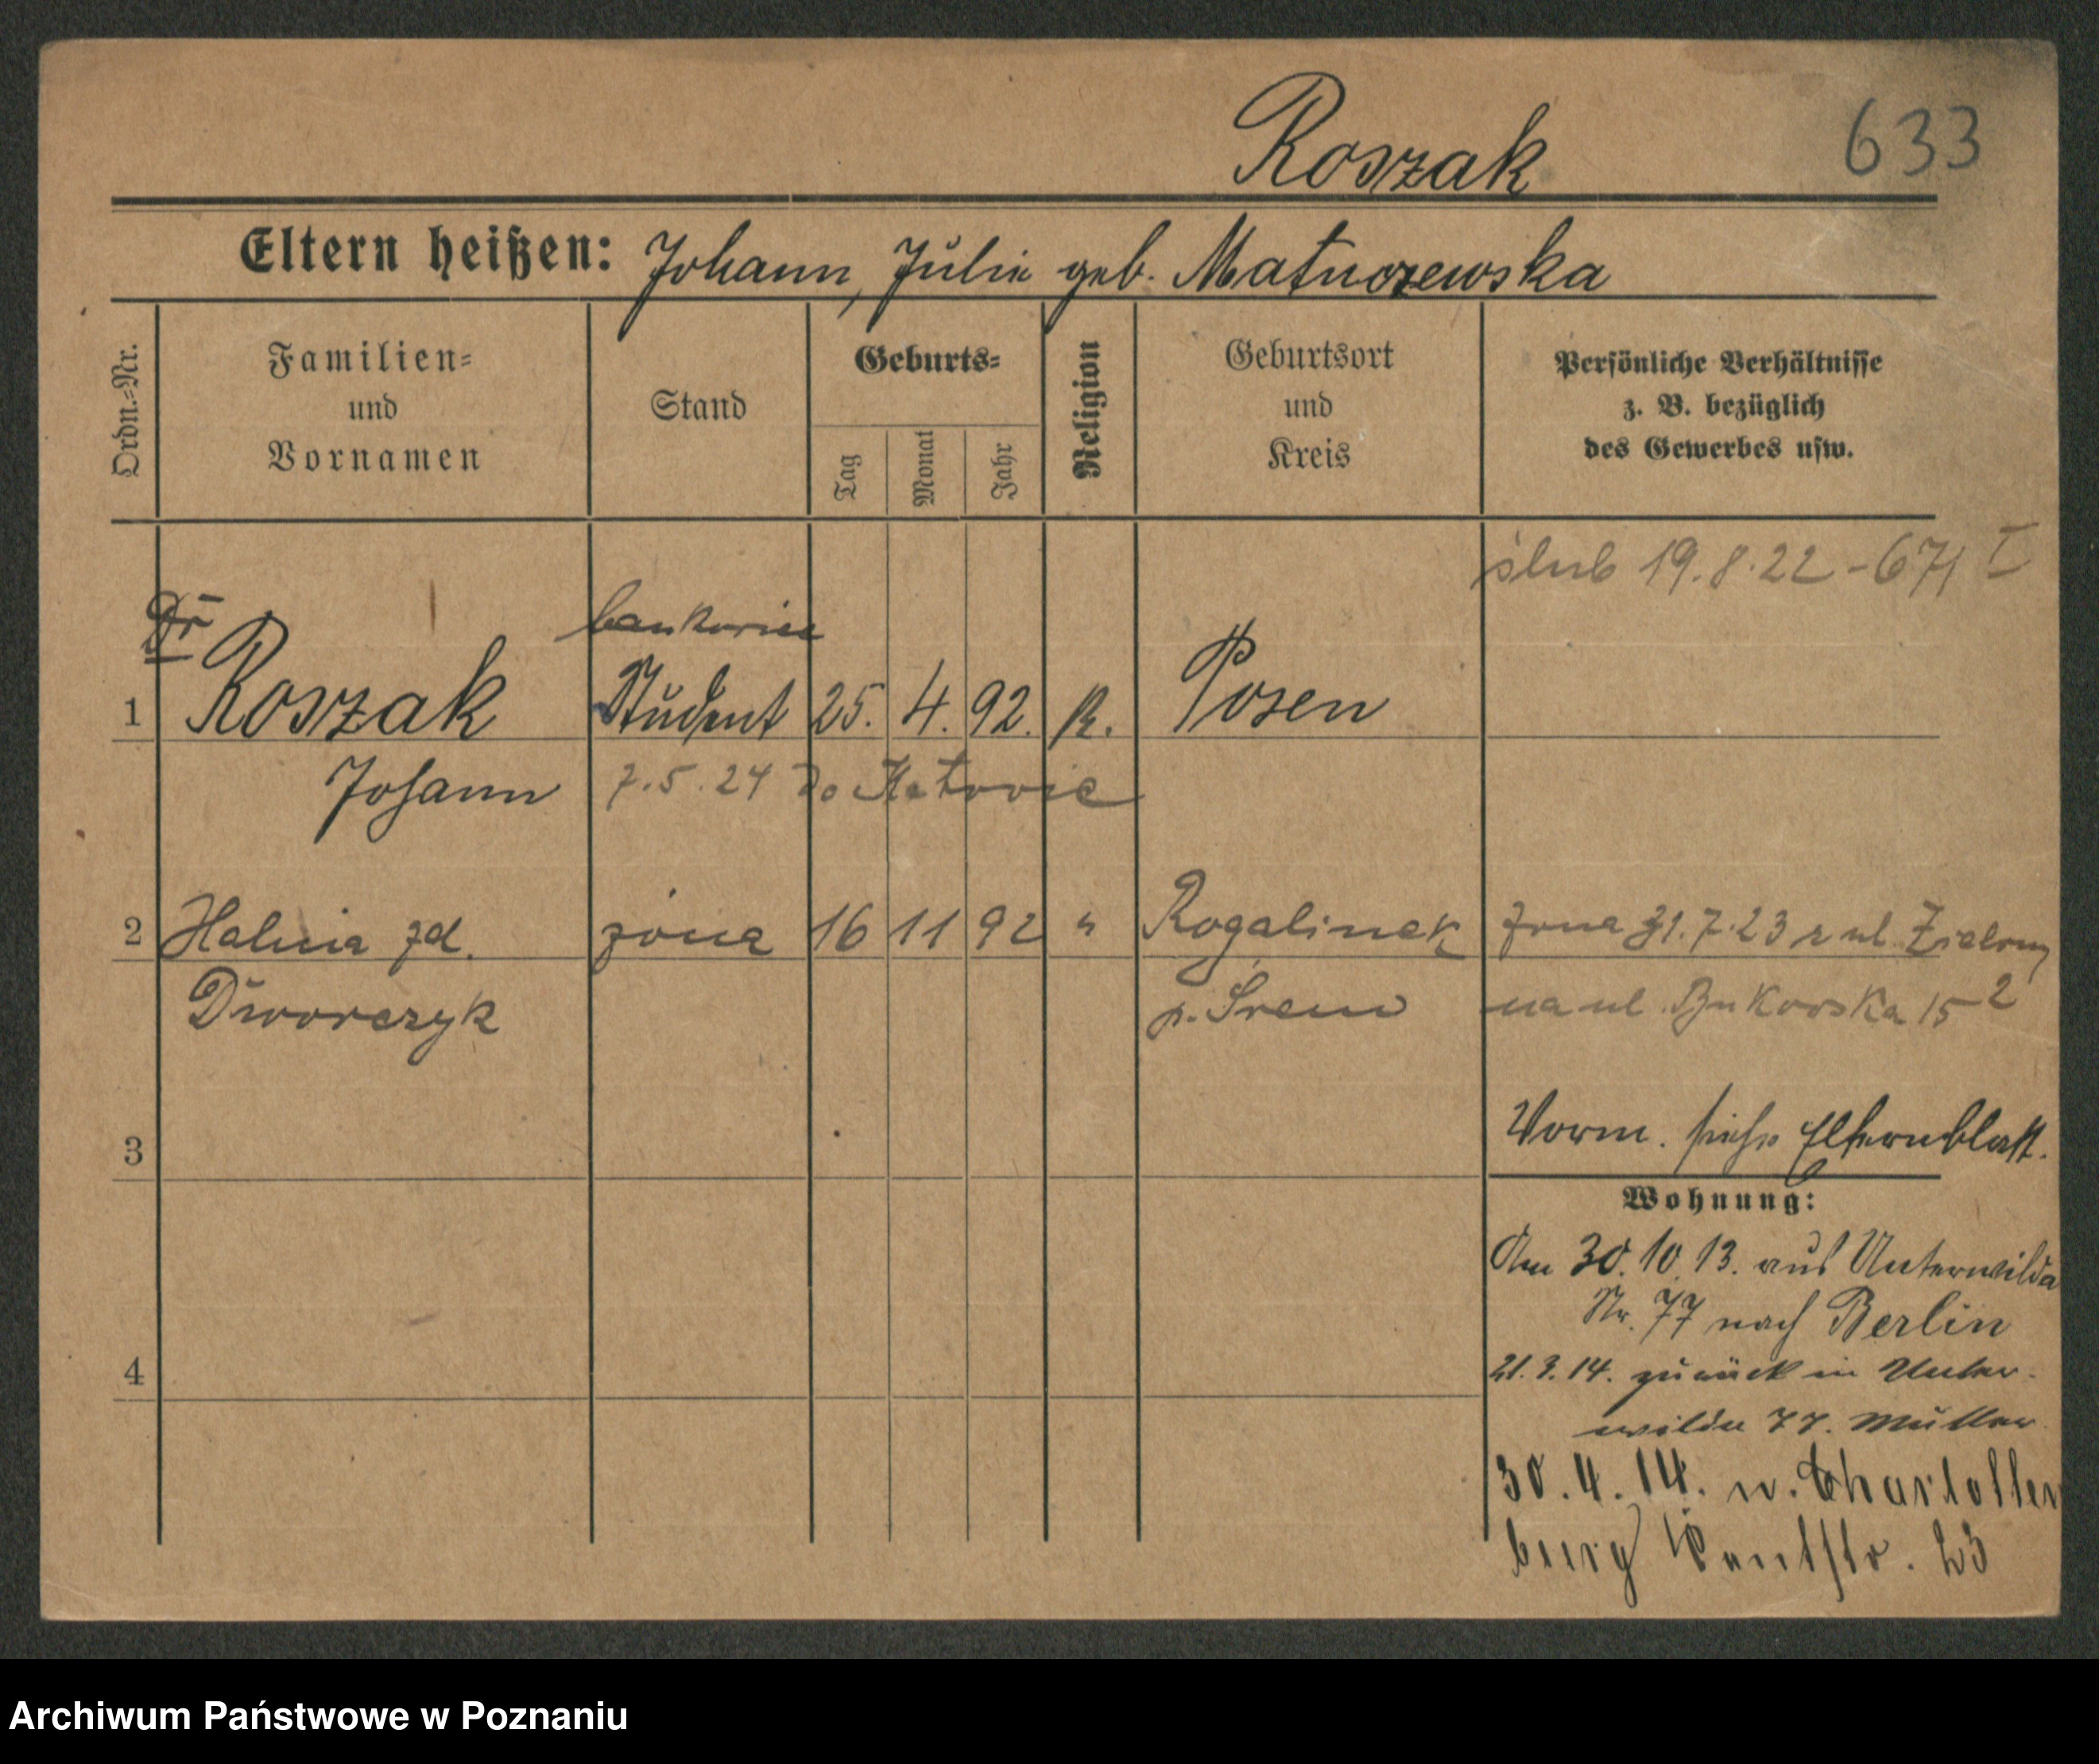 Roszak
633
Eltern heißen: Johann, Julie geb. Matuszewska
Ordn.-Nr.
Familien-
und
Vornamen
Stand
Geburts-
Tag
Monat
Jahr
Religion
Geburtsort
und
Kreis
Persönliche Verhältnisse
z. B. bezüglich
des Gewerbes usw.
ślub 19.8.22 - 671 I
Dr
bankowiec
1 Roszak Student 25. 4. 92. K. Posen
Johann 7.5.24 do Katowic
2 Halina zd. żona 16 11 92 " Rogalinek żona 31.7.23 z ul. Zielonej
Dworczyk p. Śrem na ul. Bukowska 15 2
3 Vorm. siehe Elternblatt.
Wohnung:
Am 30.10.13. aus Unterwilda
Nr. 77 nach Berlin
4 21.3.14. zurück in Unter-
wilda 77. Müller
30.4.14. n. Charlotten
burg Kantstr. 23
Archiwum Państwowe w Poznaniu